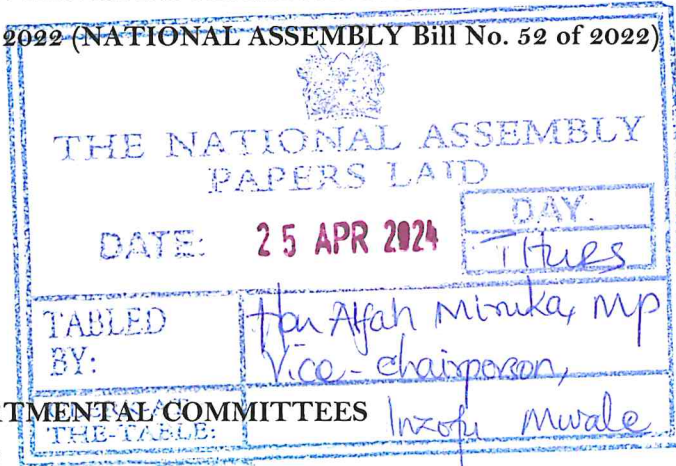 2022 (NATIONAL ASSEMBLY Bill No. 52 of 2022)
THE NATIONAL ASSEMBLY
PAPERS LAID
DAY.
DATE: 25 APR 2024 Thurs
TABLED Hon Alfah Miruka, MP
BY: Vice-chairperson,
RTMENTAL COMMITTEES
THE-TABLE: Inzofu Mwale